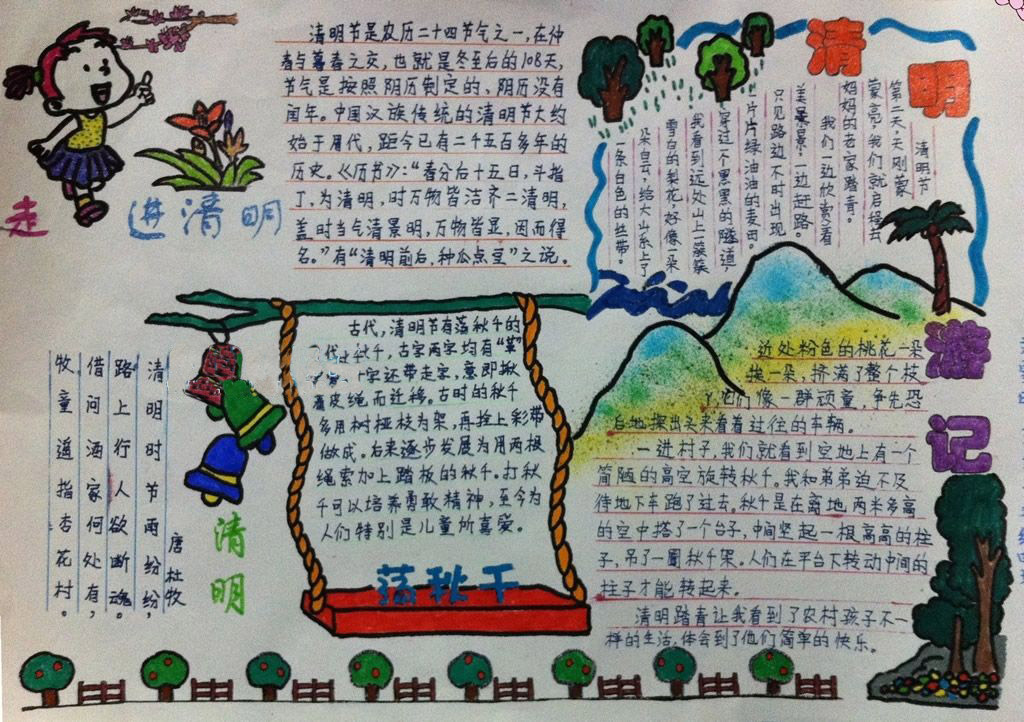 走进清明
清明节是农历二十四节气之一，在仲
春与暮春之交，也就是冬至后的108天，
节气是按照阴历制定的，阴历没有
闰年。中国汉族传统的清明节大约
始于周代，距今已有二千五百多年的
历史。《历节》："春分后十五日，斗指
丁，为清明，时万物皆洁齐二清明，
盖时当气清景明，万物皆显，因而得
名。"有"清明前后，种瓜点豆"之说。
清明
游记
清明节
第二天，天刚蒙
蒙亮，我们就启程去
妈妈的老家踏青。
我们一边欣赏着
美景景；一边赶路。
只见路边不时出现
片片绿油油的麦田。
穿过一个黑黑的隧道，
我看到远处山上一簇簇
雪白的梨花，好像一朵
朵白云，给大山系上了
一条白色的丝带。
近处粉色的桃花一朵
挨一朵，挤满了整个枝
它们像一群顽童，争先恐
后地探出头来看着过往的车辆。
一进村子，我们就看到空地上有一个
简陋的高空旋转秋千。我和弟弟迫不及
待地下车跑了过去。秋千是在离地两米多高
的空中搭了一个台子，中间竖起一根高高的柱
子，吊了一圈秋千架。人们在平台下转动中间的
柱子才能转起来。
清明踏青让我看到了农村孩子不一
样的生活，体会到了他们简单的快乐。
古代，清明节有荡秋千的
秋千，古字两字均有"革"
字还带走字，意即揪
着皮绳而迁移。古时的秋千
多用树桠枝为架，再拴上彩带
做成。后来逐步发展为用两根
绳索加上踏板的秋千。打秋
千可以培养勇敢精神，至今为
人们特别是儿童所喜爱。
荡秋千
清明
唐 杜牧
清明时节雨纷纷，
路上行人欲断魂。
借问酒家何处有，
牧童遥指杏花村。